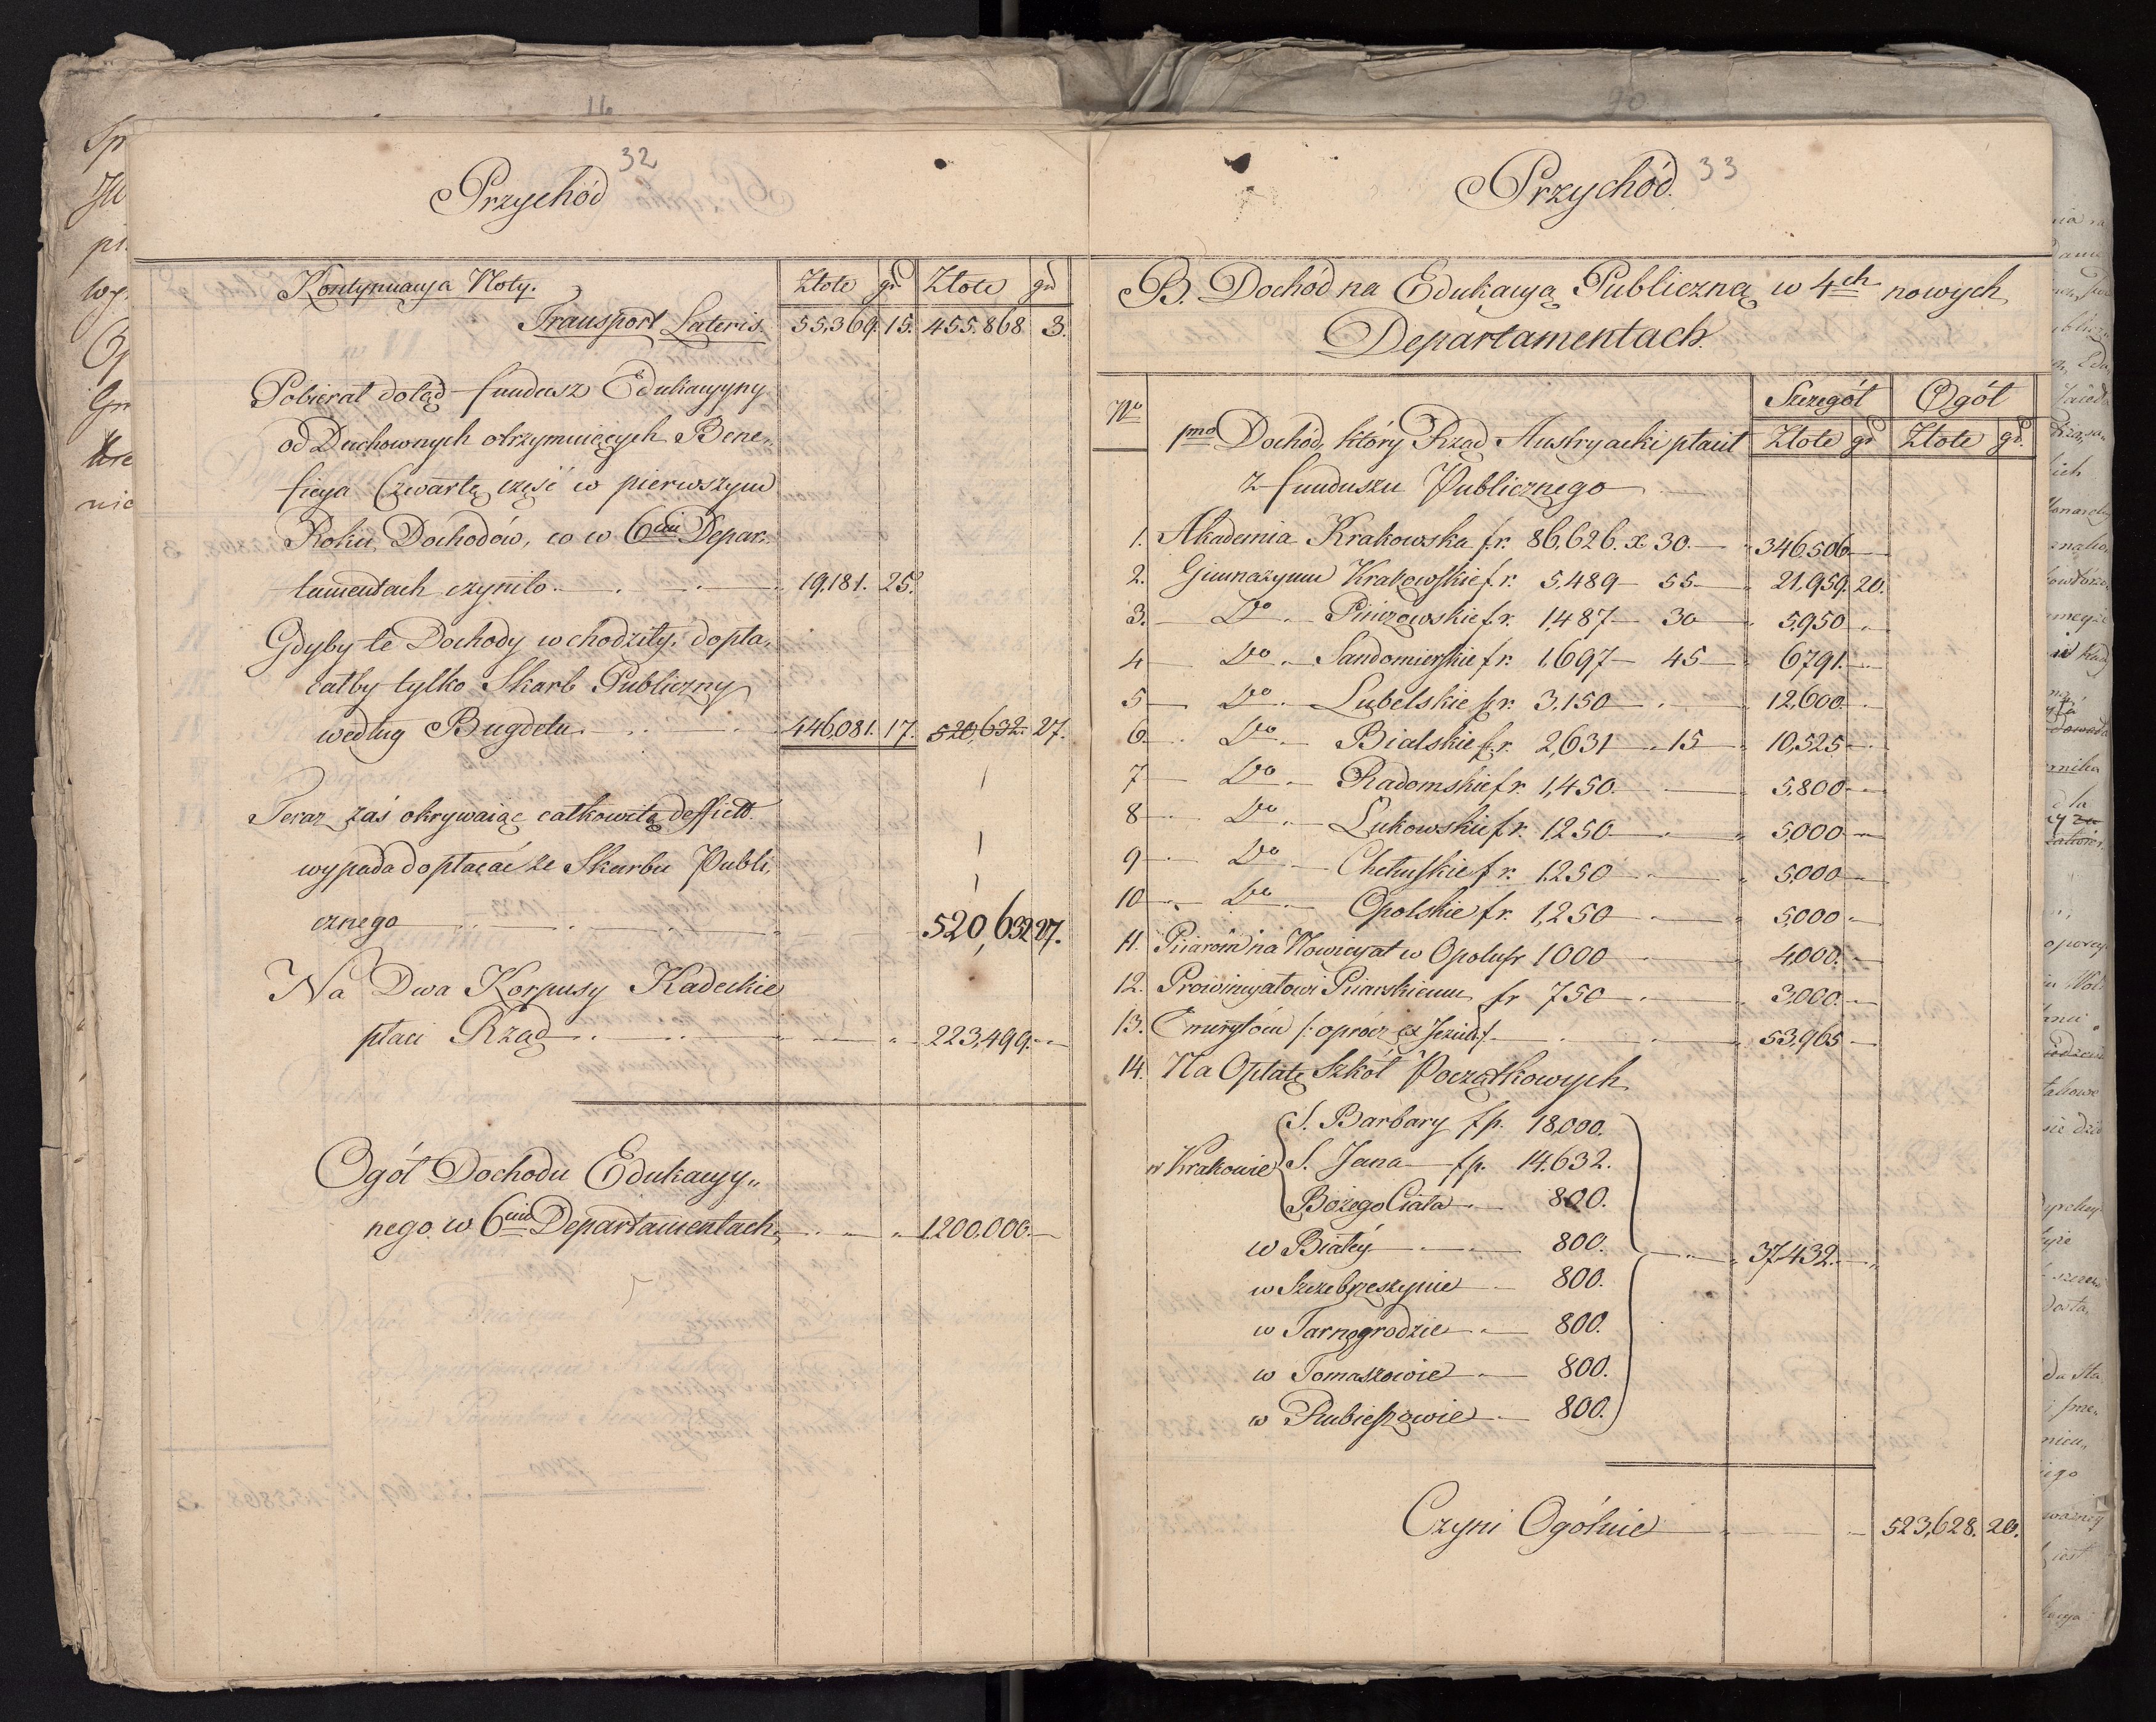 32
Przychód
Kontynuacya Noty. Złote gr Złote gr
Transport Lateris. 55,369. 15. 455.868. 3.
Pobierał dotąd fundusz Edukacyyny
od Duchownych otrzymuiących Bene„
ficya Czwartą część w pierwszym
Roku Dochodów, co w 6ciu Depar„
tamentach czyniło 19,181. 25.
Gdyby te Dochody wchodziły, dopła„
całby tylko Skarb Publiczny
według Bugdetu 446,081. 17. 520,632. 27.
Teraz zaś okrywaiąc całkowitą deffictt
wypada dopłacać ze Skarbu Publi„
cznego 520,632 27.
Na Dwa Korpusy Kadeckie
płaci Rząd 223,499.
Ogół Dochodu Edukacyy„
nego w 6ciu Departamentach 1,200,000.
33
Przychód.
B. Dochód na Edukacyą Publiczną w 4ch nowych
Departamentach.
No Szczegół Ogół
1mo Dochód, który Rząd Austryacki płacił Złote gr Złote gr.
z funduszu Publicznego
1. Akademia Krakowska fr. 86,626. x 30. 346,506
2. Gimnazyum Krakowskie fr. 5,489 55 21,959. 20.
3. Do Pinczowskie fr. 1,487 30 5,950
4 Do Sandomierskie fr. 1,697 45 6791.
5 Do Lubelskie fr. 3,150 12,600.
6. Do Bialskie fr. 2,631 15 10,525
7 Do Radomskie fr. 1,450. 5,800
8 Do Łukowskie fr. 1250 5,000
9 Do Chełmskie fr. 1250 5,000
10 Do Opolskie fr. 1,250 5,000
11. Piiarom na Nowicyat w Opolu fr 1000 4,000.
12. Prowincyałowi Piiarskiemu fr 750 3,000.
13. Emerytów /: oprócz ex Jezuit :/ 53,965
14. Na Opłatę Szkół Początkowych
w Krakowie S. Barbary fp. 18,000.
S. Jana fp. 14,632.
Bożego Ciała 800.
w Białey 800. 37,432.
w Szczebrzeszynie 800.
w Tarnogrodzie 800.
w Tomaszowie 800.
w Rubieszowie 800.
Czyni Ogólnie 523,628. 20.